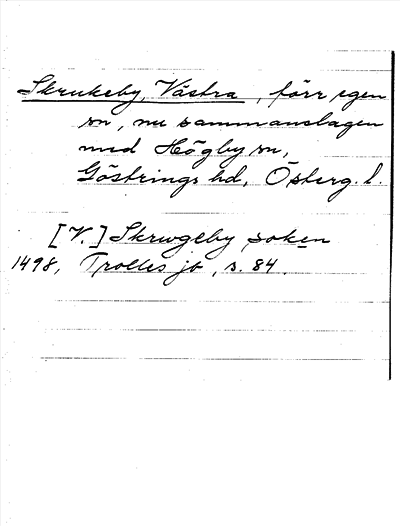 Skrukeby, Västra, förr egen
sn, nu sammanslagen
med Högby sn,
Göstrings hd, Österg. l.
[V.] Skrwgeby soken
1498, Trolles jb, s. 84.